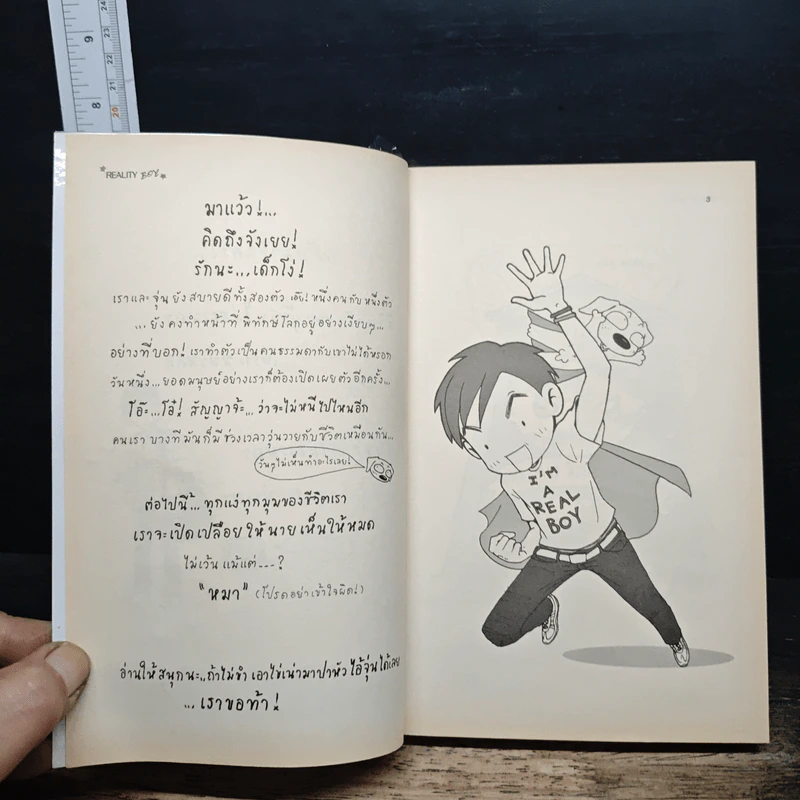 *REALITY BOY*
มาแว้ว!...
คิดถึงจังเยย!
รักนะ...เด็กโง่!
เราและ จุ่น ยังสบายดีทั้งสองตัว เอ๊ย! หนึ่งคนกับหนึ่งตัว
...ยังคงทำหน้าที่ พิทักษ์โลกอยู่อย่างเงียบๆ...
อย่างที่บอก! เราทำตัวเป็นคนธรรมดากับเขาไม่ได้หรอก
วันหนึ่ง...ยอดมนุษย์อย่างเราก็ต้องเปิดเผยตัวอีกครั้ง...
โอ๊ะ...โอ๋! สัญญาจ้ะ...ว่าจะไม่หนีไปไหนอีก
คนเรา บางทีมันก็มีช่วงเวลาวุ่นวายกับชีวิตเหมือนกัน...
วันๆไม่เห็นทำอะไรเลย!
ต่อไปนี้... ทุกแง่ทุกมุมของชีวิตเรา
เราจะเปิดเปลือย ให้นายเห็นให้หมด
ไม่เว้นแม้แต่---?
"หมา" (โปรดอย่าเข้าใจผิด!)
อ่านให้สนุกนะ..ถ้าไม่ขำ เอาไข่เน่ามาปาหัวไอ้จุ่นได้เลย
...เราขอท้า!
3
I'M
A
REAL
BOY
9
8
24
23
22
21
20